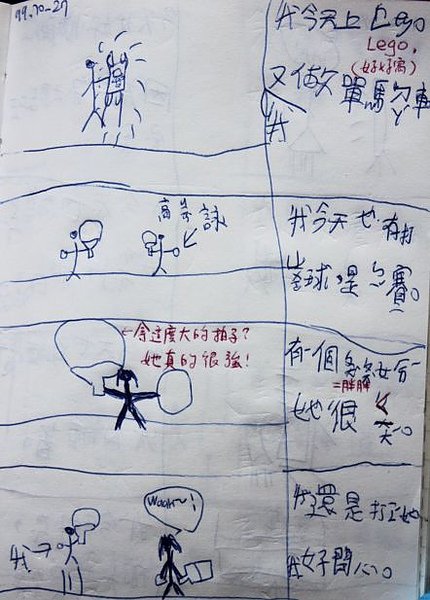 99.10-27
我今天上Lego
Lego,
(好好寫)
又做ㄌ單馬欠車
我今天也有打
球,是 賽。
高 詠
有一個 
=胖胖
她很 。
←拿這麼大的拍子?
她真的很強!
我還是打 她
我好開心。
我→
Wooh~!